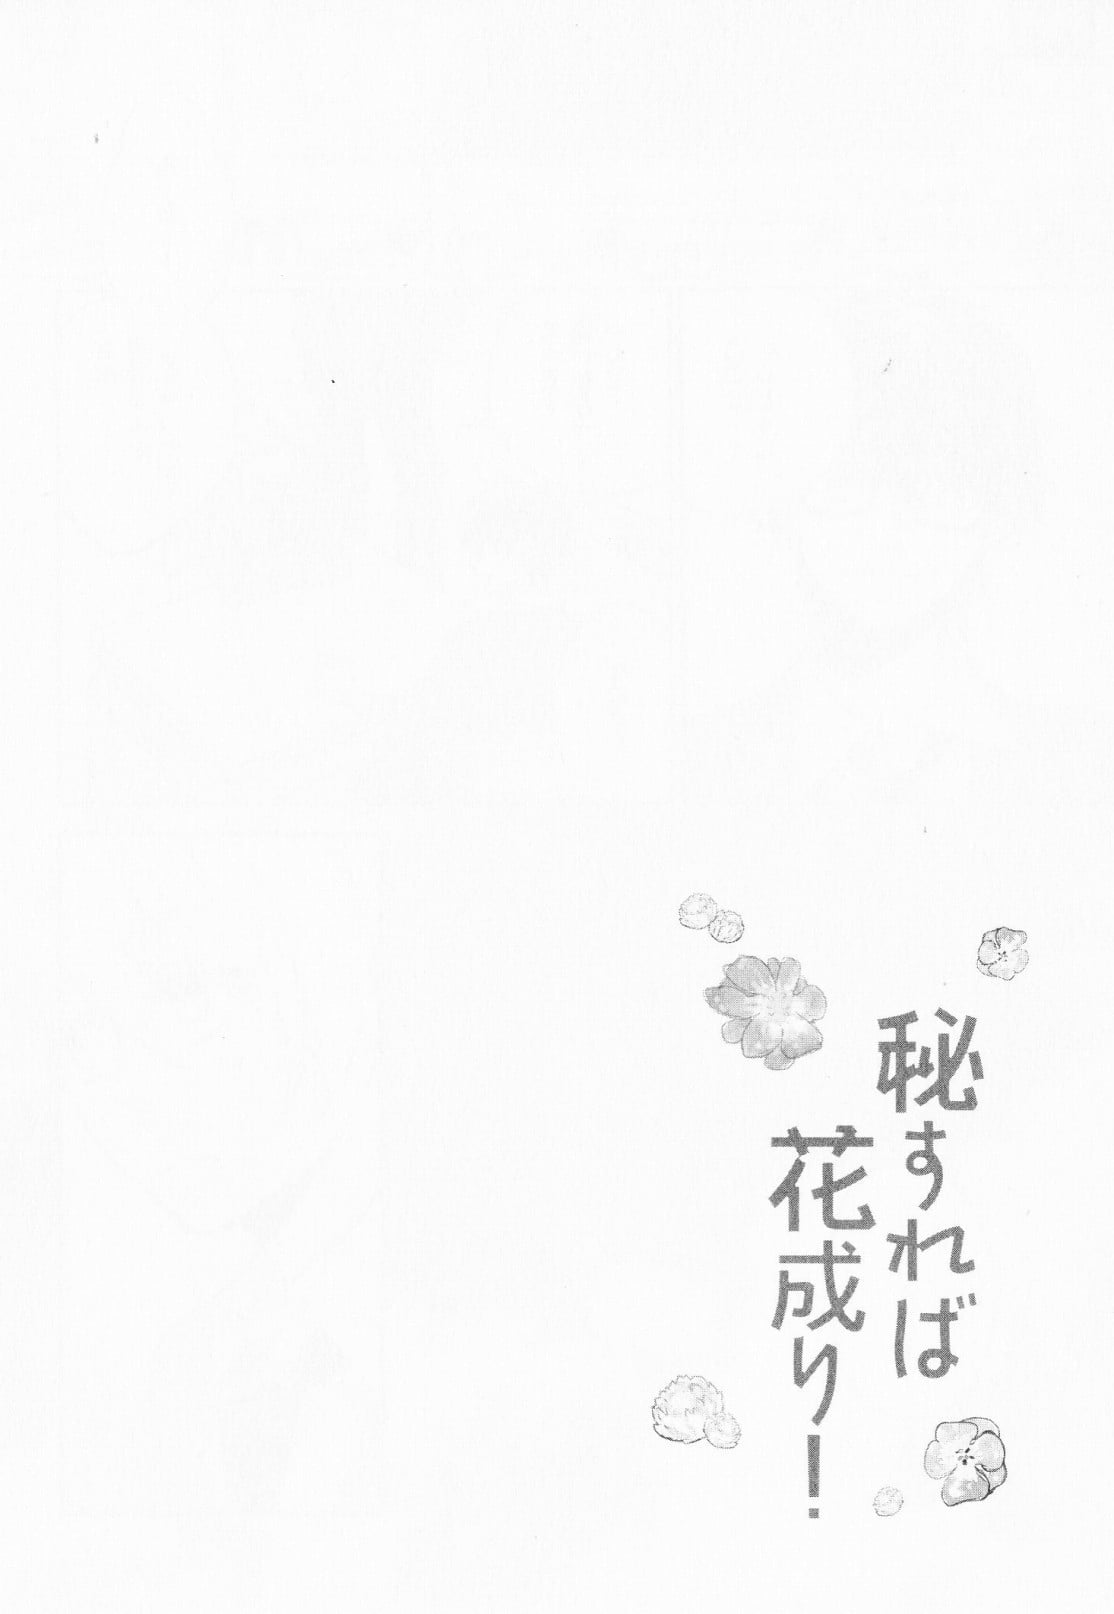 秘すれば
花成り!